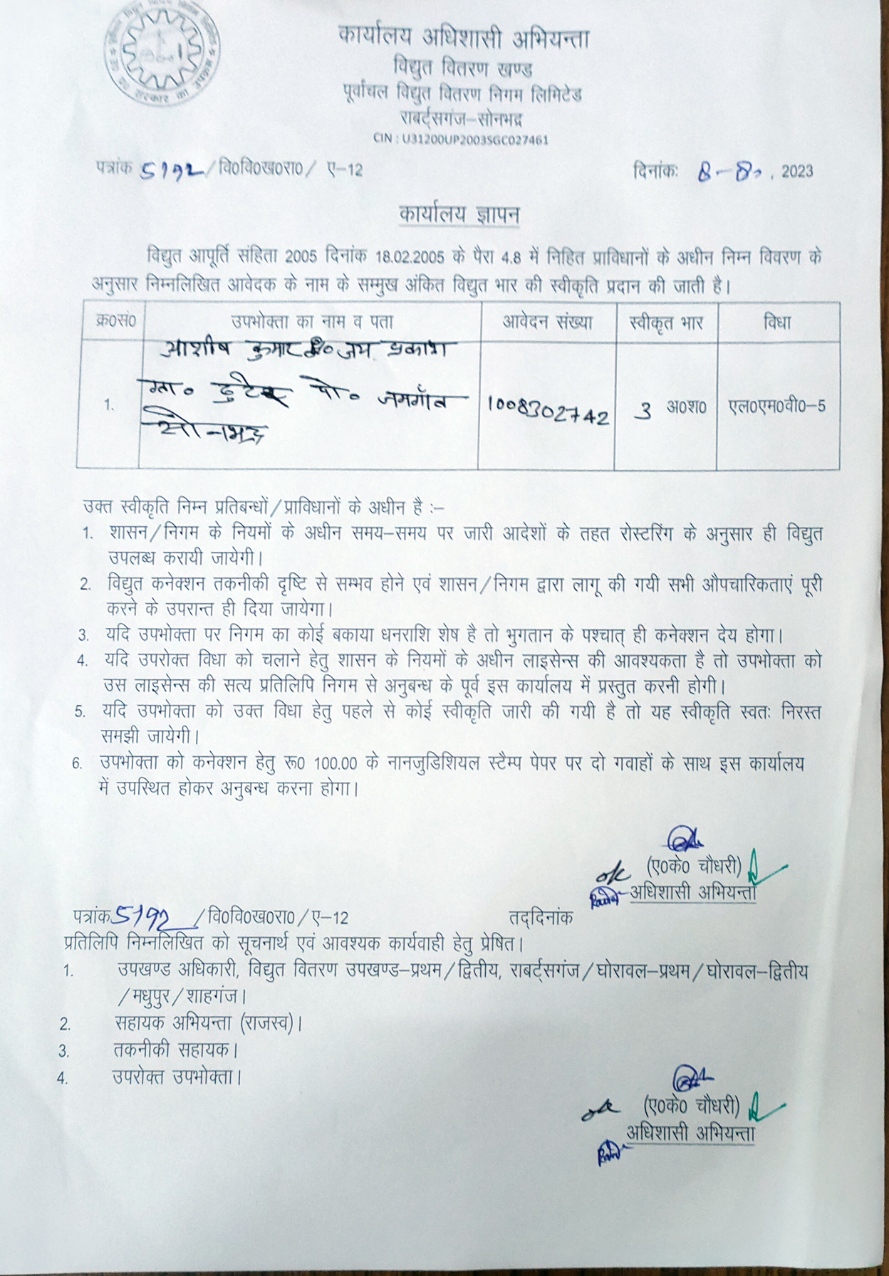 कार्यालय अधिशासी अभियन्ता
विद्युत वितरण खण्ड
पूर्वाचल विद्युत वितरण निगम लिमिटेड
राबर्ट्सगंज–सोनभद्र
CIN : U31200UP2003SGC027461
पत्रांक 5192/वि0वि0ख0रा0/ ए–12 दिनांकः 8–8, 2023
कार्यालय ज्ञापन
विद्युत आपूर्ति संहिता 2005 दिनांक 18.02.2005 के पैरा 4.8 में निहित प्राविधानों के अधीन निम्न विवरण के
अनुसार निम्नलिखित आवेदक के नाम के सम्मुख अंकित विद्युत भार की स्वीकृति प्रदान की जाती है।
क्र0सं0 उपभोक्ता का नाम व पता आवेदन संख्या स्वीकृत भार विधा
आशीष कुमार जय प्रकाश
1. ग्रा० पो० जमगाँव 1008302742 3 अ0श0 एल0एम0वी0–5
सोनभद्र
उक्त स्वीकृति निम्न प्रतिबन्धों/प्राविधानों के अधीन है :–
1. शासन/निगम के नियमों के अधीन समय–समय पर जारी आदेशों के तहत रोस्टरिंग के अनुसार ही विद्युत
उपलब्ध करायी जायेगी।
2. विद्युत कनेक्शन तकनीकी दृष्टि से सम्भव होने एवं शासन/निगम द्वारा लागू की गयी सभी औपचारिकताएं पूरी
करने के उपरान्त ही दिया जायेगा।
3. यदि उपभोक्ता पर निगम का कोई बकाया धनराशि शेष है तो भुगतान के पश्चात् ही कनेक्शन देय होगा।
4. यदि उपरोक्त विधा को चलाने हेतु शासन के नियमों के अधीन लाइसेन्स की आवश्यकता है तो उपभोक्ता को
उस लाइसेन्स की सत्य प्रतिलिपि निगम से अनुबन्ध के पूर्व इस कार्यालय में प्रस्तुत करनी होगी।
5. यदि उपभोक्ता को उक्त विधा हेतु पहले से कोई स्वीकृति जारी की गयी है तो यह स्वीकृति स्वतः निरस्त
समझी जायेगी।
6. उपभोक्ता को कनेक्शन हेतु रू0 100.00 के नानजुडिशियल स्टैम्प पेपर पर दो गवाहों के साथ इस कार्यालय
में उपस्थित होकर अनुबन्ध करना होगा।
ok (ए0के0 चौधरी)
अधिशासी अभियन्ता
पत्रांक 5192 /वि0वि0ख0रा0/ए–12 तद्दिनांक
प्रतिलिपि निम्नलिखित को सूचनार्थ एवं आवश्यक कार्यवाही हेतु प्रेषित।
1. उपखण्ड अधिकारी, विद्युत वितरण उपखण्ड–प्रथम/द्वितीय, राबर्ट्सगंज/घोरावल–प्रथम/घोरावल–द्वितीय
/मधुपुर/शाहगंज।
2. सहायक अभियन्ता (राजस्व)।
3. तकनीकी सहायक।
4. उपरोक्त उपभोक्ता।
ok (ए0के0 चौधरी)
अधिशासी अभियन्ता